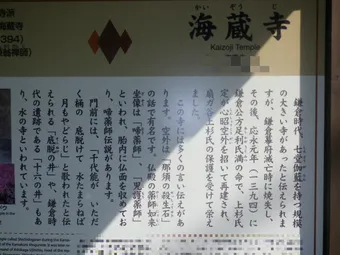 海蔵寺
かいぞうじ
Kaizoji Temple
鎌倉時代、七堂伽藍を持つ規模
の大きい寺があったと伝えられま
すが、鎌倉幕府滅亡時に焼失し、
その後、応永元年(一三九四)に
鎌倉公方足利氏満の命で、上杉氏
定が心昭空外を招いて再建され、
扇ガ谷上杉氏の保護を受けて栄え
ました。
この寺には多くの言い伝えがあ
ります。空外は「那須の殺生石」
の話で有名です。仏殿の薬師如来
坐像は「啼薬師」、「児護薬師」
といわれ、胎内に仏面を収めてお
り、啼薬師伝説があります。
門前には、「千代能が いただ
く桶の 底脱けて 水たまらねば
月もやどらじ」と歌われたと伝
えられる「底脱の井」や、鎌倉時
代の遺跡である「十六の井」もあ
り、水の寺といわれています。
海蔵寺
394)